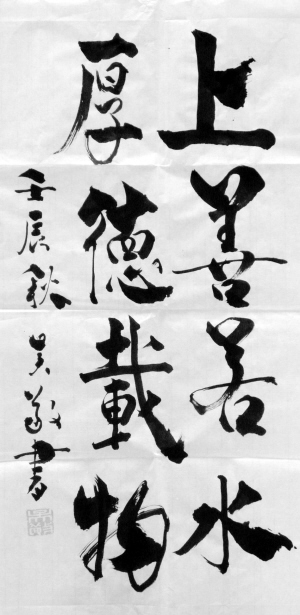 上善若水
厚德載物
壬辰秋 吳敬書